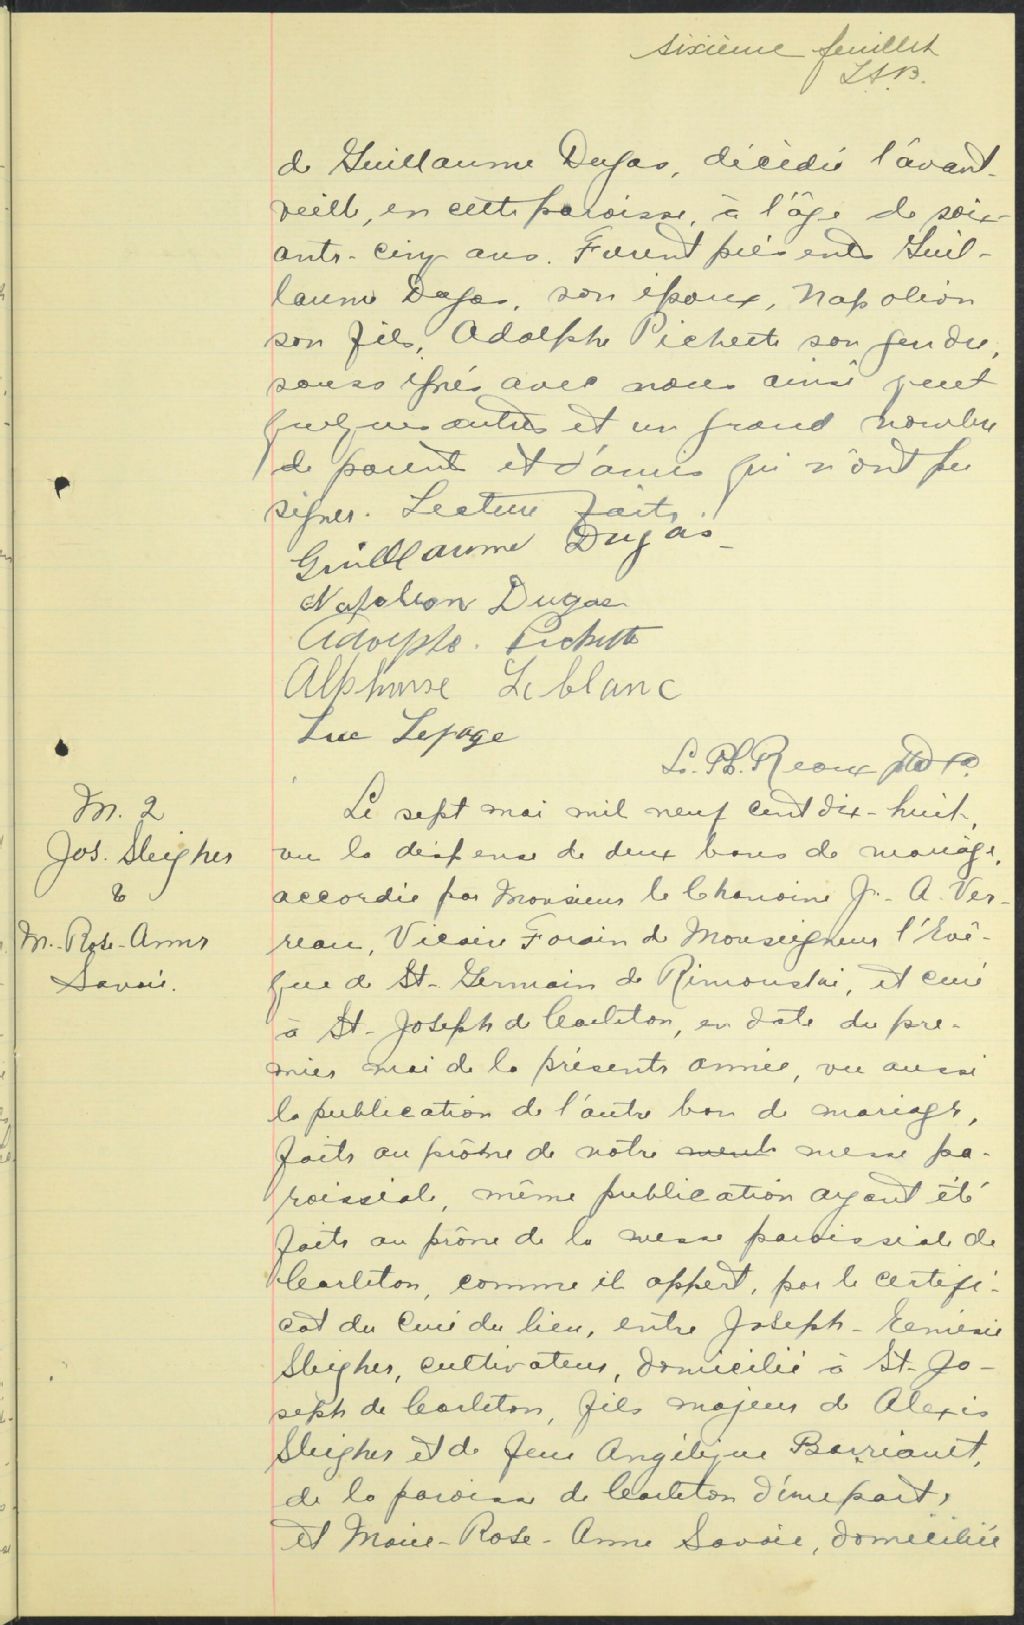 sixième feuillet
L.S.B.
de Guillaume Dugas, décédée l'avant-
veille, en cette paroisse, à l'âge de soix-
ante-cinq ans. Furent présents Guil-
laume Dugas, son époux, Napoléon
son fils, Adolphe Pichette son gendre,
soussignés avec nous ainsi que
quelques autres et un grand nombre
de parents et d'amis qui n'ont pu
signer. Lecture faite.
Guillaume Dugas
Napoleon Dugas
Adolphe. Pichette
Alphonse Leblanc
Luc Lepage
L. Ph. Reoux ptre
M. 2
Jos. Sleigher
&
M.-Rose-Anne
Savoie.
Le sept mai mil neuf cent dix-huit,
vu la dispense de deux bans de mariage,
accordée par Monsieur le Chanoine J.-A. Ver-
reau, Vicaire Forain de Monseigneur l'Evê-
que de St-Germain de Rimouski, et curé
à St-Joseph de Carleton, en date du pre-
mier mai de la présente année, vu aussi
la publication de l'autre ban de mariage,
faite au prône de notre messe pa-
roissiale, même publication ayant été
faite au prône de la messe paroissiale de
Carleton, comme il appert, par le certifi-
cat du Curé du lieu, entre Joseph-
Sleigher, cultivateur, domicilié à St-Jo-
seph de Carleton, fils majeur de Alexis
Sleigher et de feue Angélique Barriault,
de la paroisse de Carleton d'une part,
et Marie-Rose-Anne Savoie, domiciliée